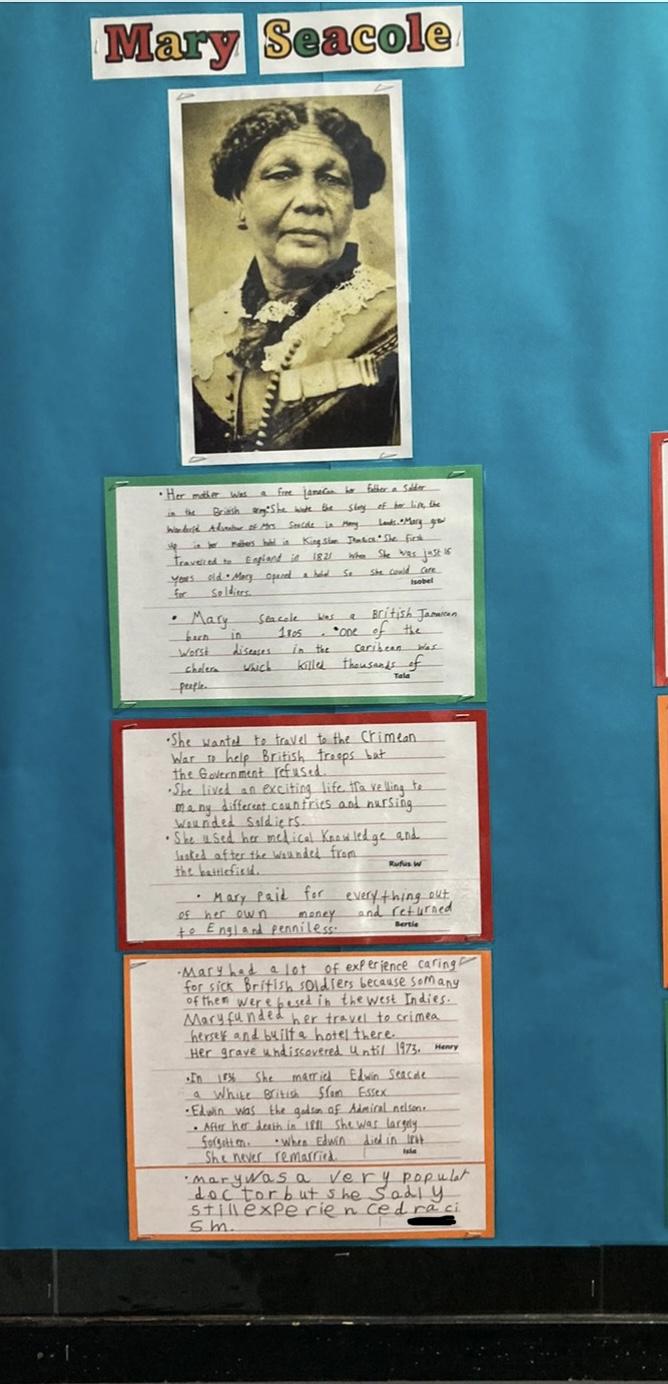 Mary Seacole
• Her mother was a free jamacan her father a Solder
in the British army • She wrote the story of her life, the
Wonderful Adventour of Mrs Seacole in Many Lands. • Mary grew
up in her mothers hotel in Kingston Jamaica • She first
Travelled to England in 1821 When She was just 16
years old • Mary opened a hotel So She could care
for Soldiers.
Isobel
• Mary Seacole was a British Jamaican
born in 1805 . • one of the
worst diseases in the caribean was
cholera which killed thousands of
people.
Tala
• She wanted to travel to the Crimean
War to help British troops but
the Government refused.
• She lived an exciting life travelling to
many different countries and nursing
wounded Soldiers.
• She used her medical Knowledge and
looked after the wounded from
the battlefield.
Rufus W
• Mary Paid for everything out
of her own money and returned
to England penniless.
Bertie
• Mary had a lot of experience caring
for sick British soldiers because somany
of them were based in the West Indies.
Mary funded her travel to crimea
herself and built a hotel there.
Her grave undiscovered Until 1973. Henry
• In 1836 She married Edwin Seacole
a White British from Essex
• Edwin was the godson of Admiral nelson.
• After her death in 1881 She was largely
forgotten. • When Edwin died in 1844
She never remarried.
Isla
• mary was a very popular
doctor but she Sadly
still experienced raci
sm.